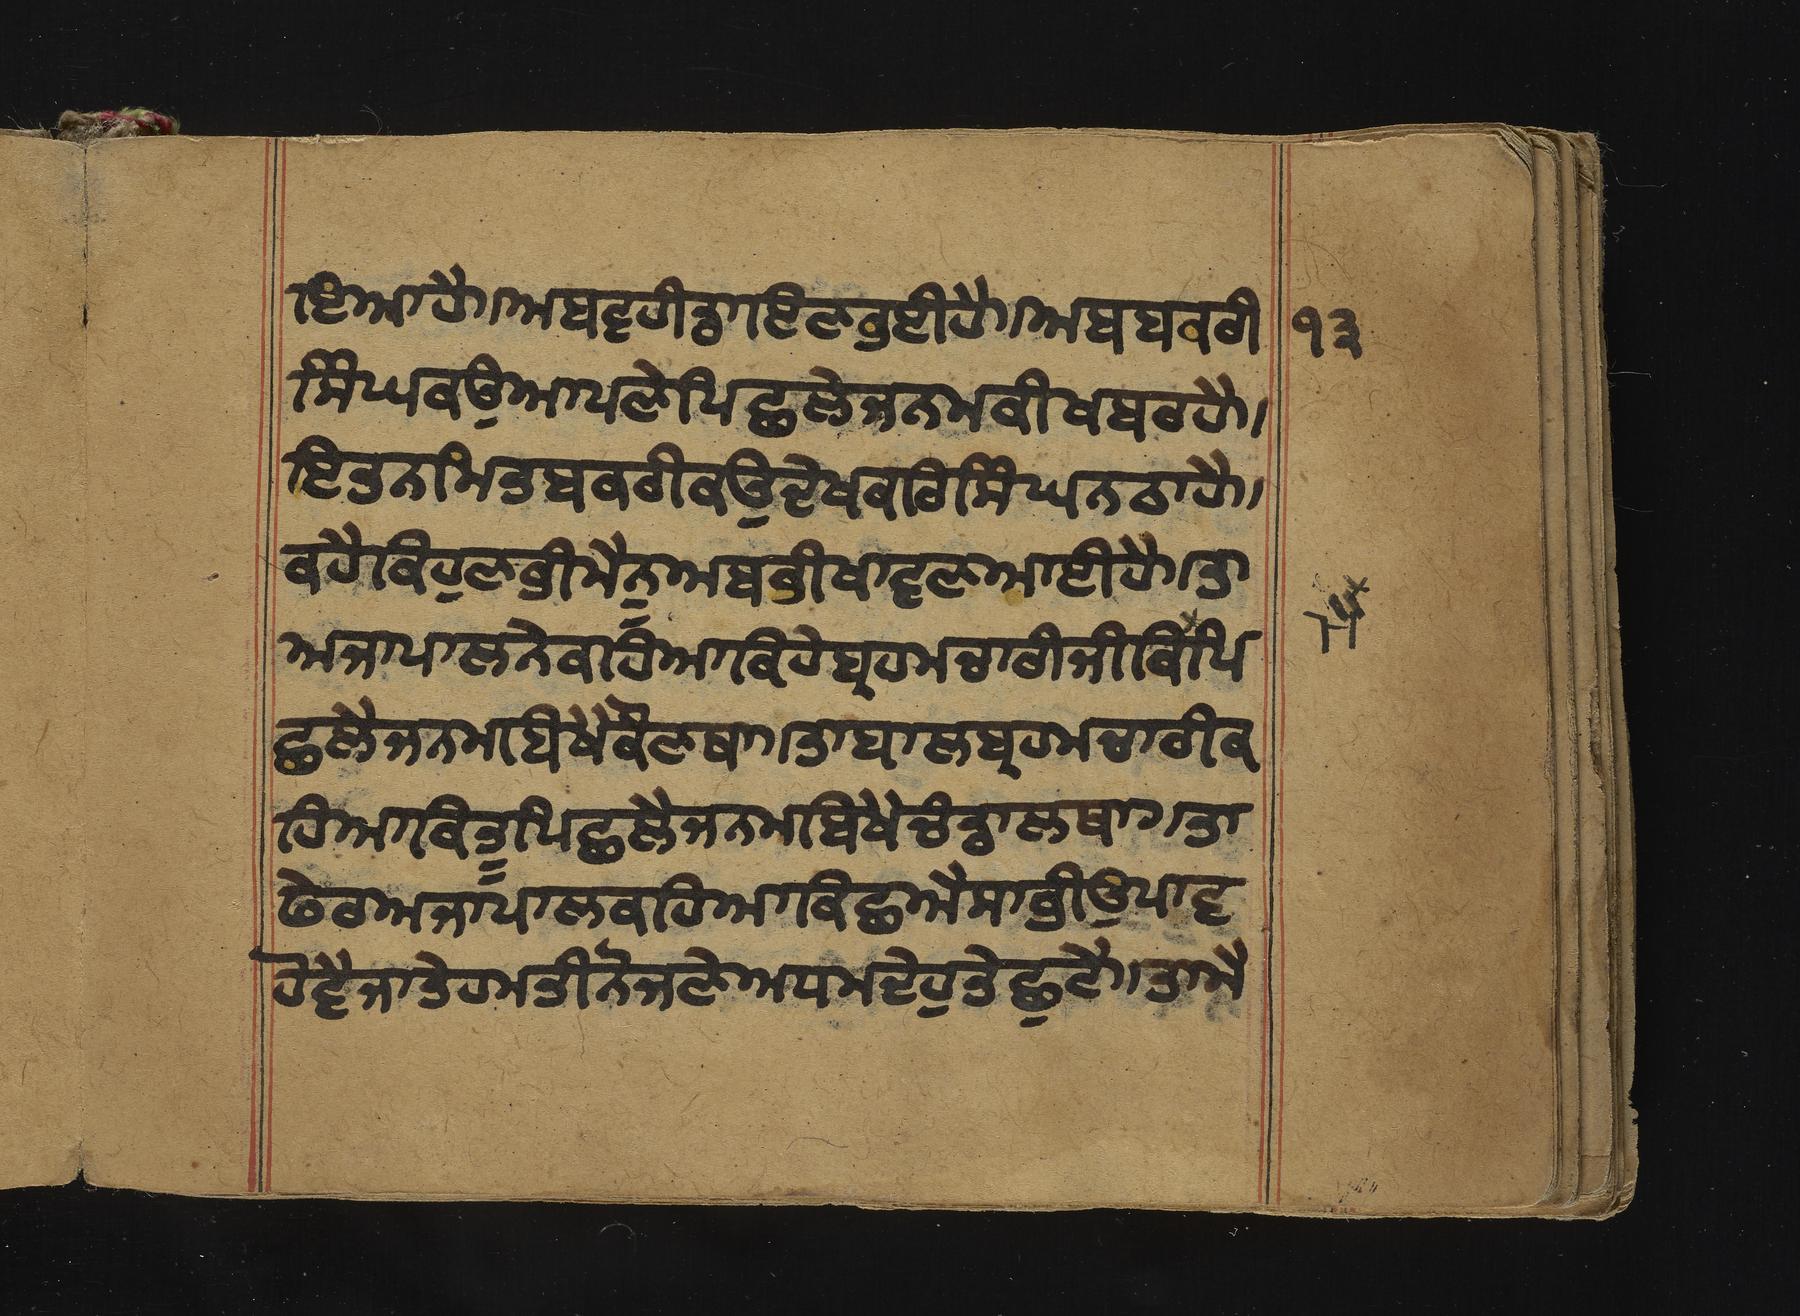 ਇਆਹੈ।ਅਬਵਹੀਡਾਇਣਭੁਈਹੈ।ਅਬਬਕਰੀ ੧੩
ਸਿੰਘਕਉਆਪਣੇਪਿਛਲੇਜਨਮਕੀਖਬਰਹੈ।
ਇਤਨਮਿਤਬਕਰੀਕਉਦੇਖਕਰਿਸਿੰਘਨਠਾਹੈ।
ਕਹੈਕਿਹੁਣਭੀਮੈਨੂਅਬਭੀਖਾਵਣਆਈਹੈ।ਤਾ
ਅਜਾਪਾਲਨੇਕਹਿਆਕਿਹੇਬ੍ਰਹਮਚਾਰੀਜੀਕਿਪਿ
ਛਲੈਜਨਮਬਿਖੇਕੌਣਥਾ।ਤਾਬਾਲਬ੍ਰਹਮਚਾਰੀਕ
ਹਿਆਕਿਤੂਪਿਛਲੈਜਨਮਬਿਖੇਚੰਡਾਲਥਾ।ਤਾ
ਫੇਰਅਜਾਪਾਲਕਹਿਆਕਿਛਐਸਾਭੀਉਪਾਵ
ਹੋਵੈਜਾਤੇਹਮਤੀਨੋਜਣੇਅਧਮਦੇਹੁਤੇਛੁਟੈ।ਤਾਮੈ